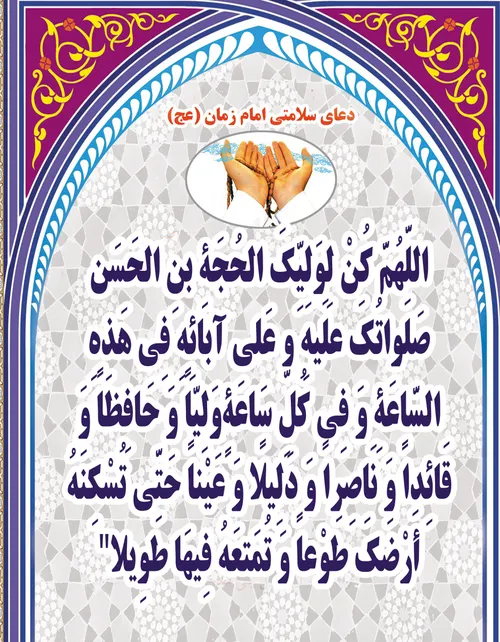 دعای سلامتی امام زمان (عج)
اللّهُمّ كُنْ لِوَلیِّکَ الحُجَهِٔ بنِ الحَسَن
صَلَواتُکَ علَیهِ و عَلی آبائِهِ فی هَذهِ
السَّاعَهِٔ وَ فی کُلّ سَاعَهٔ وَلیّا وَ حَافظَا وَ
قَائدا وَ نَاصَرا وَ دَلیلا وَ عَیْنَا حَتّی تُسْکنَهُ
أَرْضَکَ طَوْعاً وَ تُمَتعَهُ فِیهَا طَوِیلا"